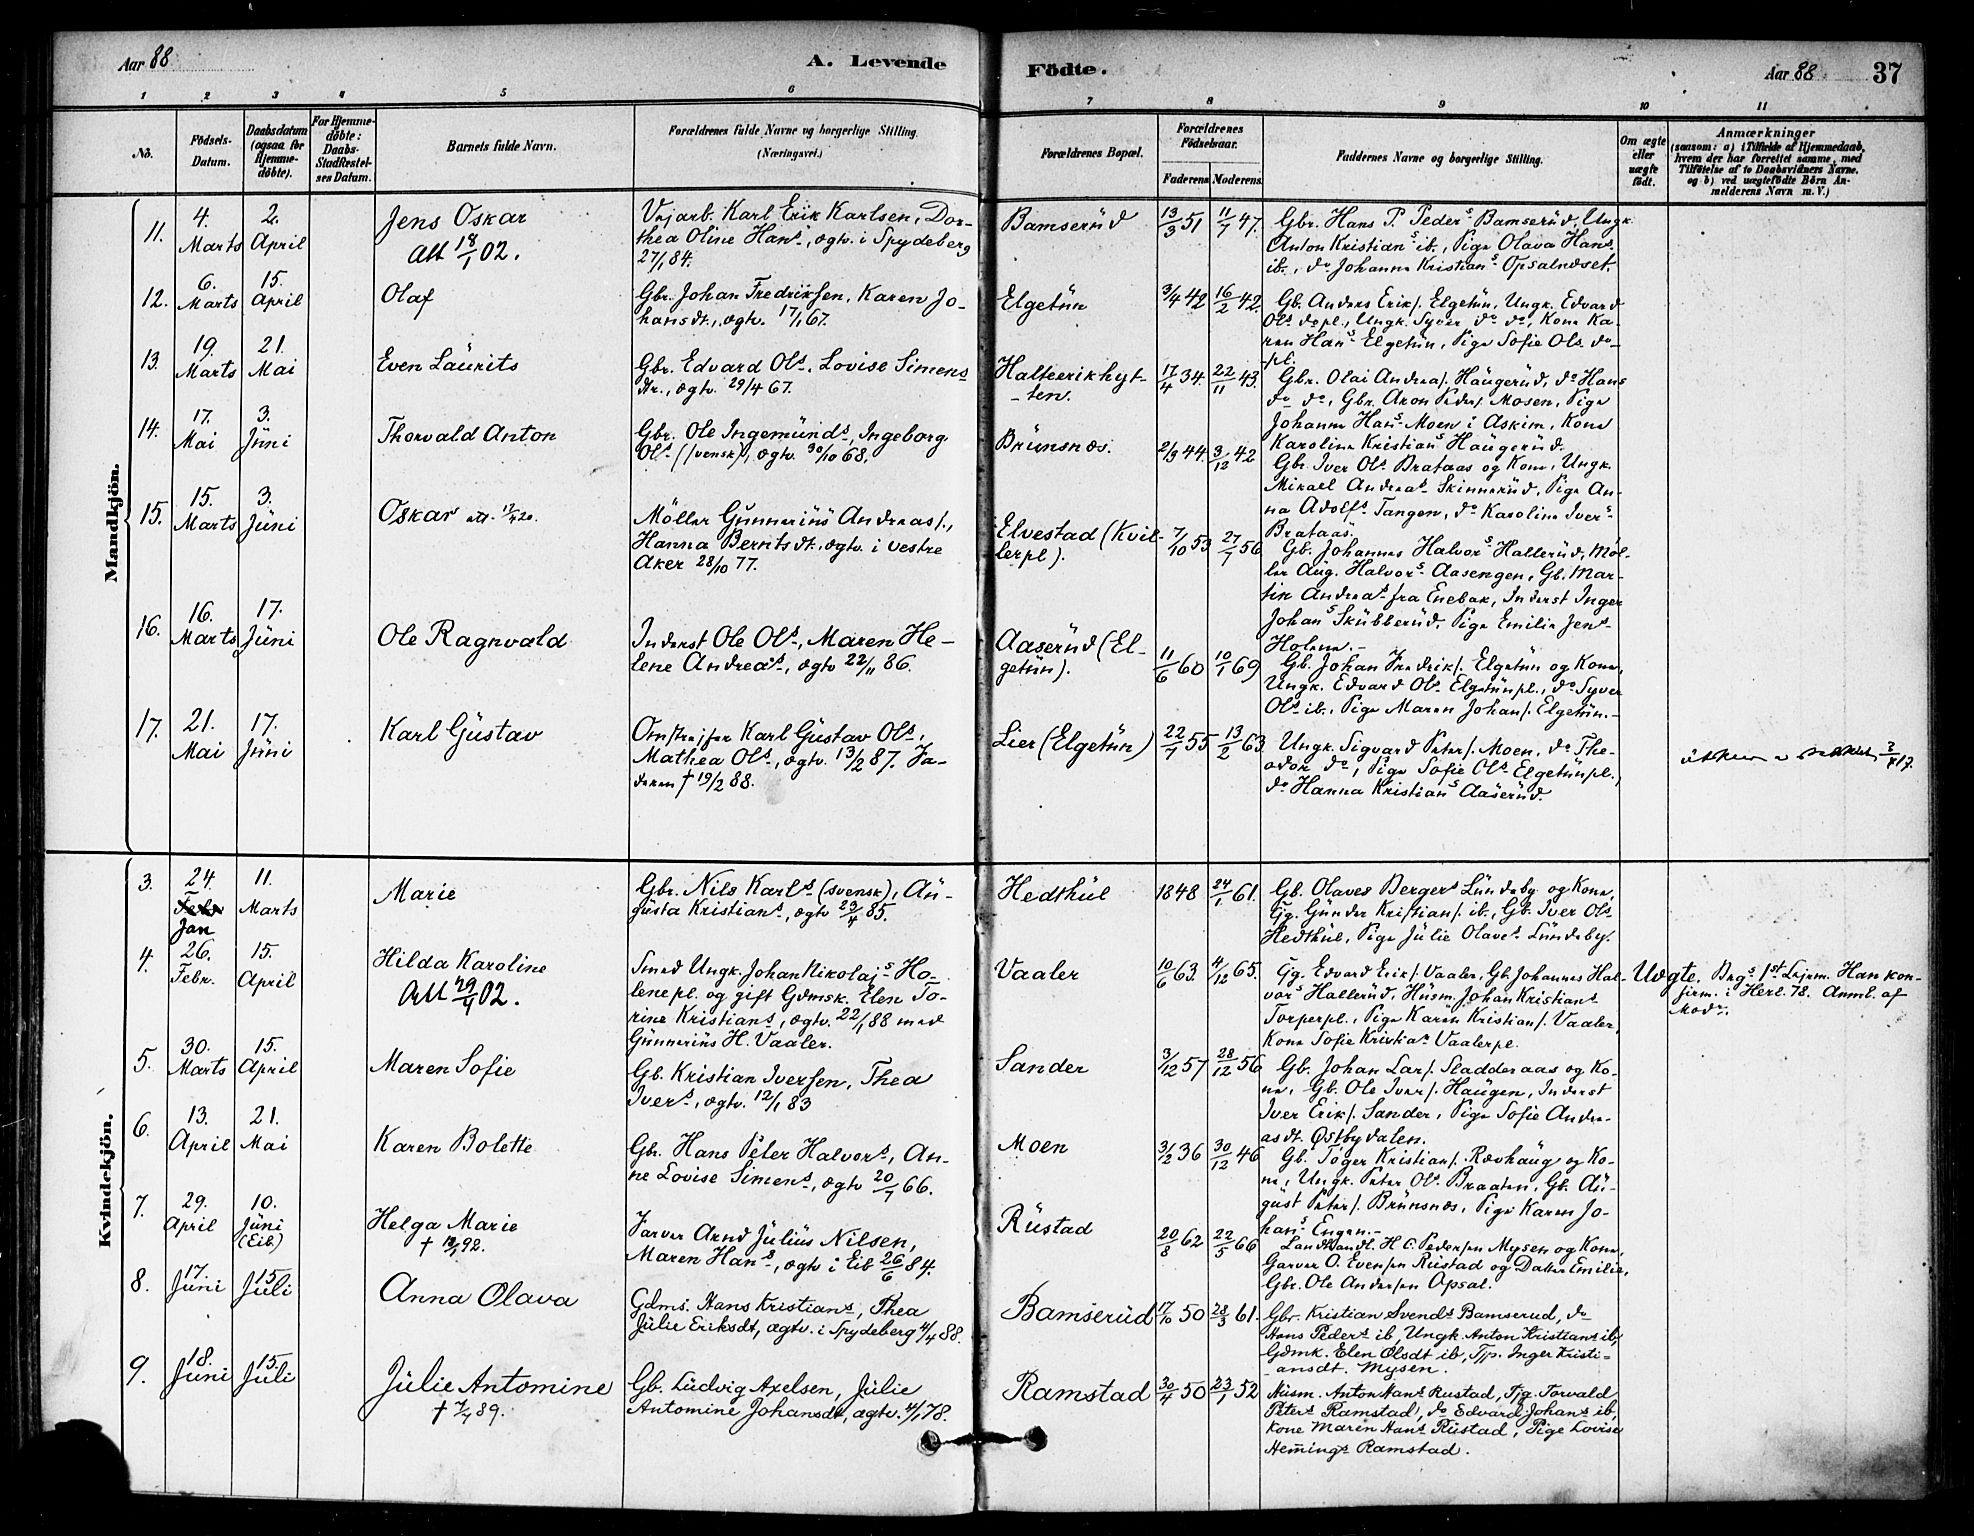 Aar 88
A. Levende
Födte.
Aar 88
37
1 2 3 4 5 6 7 8 9 10 11
No.
Födsels-Datum.
Daabsdatum (ogsaa for Hjemme-döbte).
For Hjemme-döbte: Daabs-Stadfæstel-ses Datum.
Barnets fulde Navn.
Forældrenes fulde Navne og borgerlige Stilling.
(Næringsvei.)
Forældrenes Bopæl.
Forældrenes Födselsaar.
Faderens Moderens.
Faddernes Navne og borgerlige Stilling.
Om ægte eller uægte födt.
Anmærkninger
(saasom: a) i Tilfælde af Hjemmedaab,
hvem der har forrettet samme, med
Tilföielse af to Daabsvidners Navne.
og b) ved uægtefödte Börn An-
melderens Navn m. V.)
Mandkjön.
11. 4. Marts 2. April
Jens Oskar
Att 18/1 02.
Vejarb. Karl Erik Karlsen, Dor-
thea Oline Hans, ægtv. i Spydeberg
27/1 84.
Bamserüd
13/3 51 11/7 47.
Gbr. Hans P. Peders Bamserüd, Ungk
Anton Kristians ib., Pige Olava Hans
ib., do Johanne Kristians Opsalødset.
12. 6. Marts 15. April
Olaf
Gbr. Johan Fredriksen, Karen Jo-
hansdt., ægtv. 17/1 67.
Elgetün
3/4 42 16/2 42.
Gb. Anders Eriks. Elgetün, Ungk. Edvard
Ols. do pl., Ungk. Syver do do, Kone Ka-
ren Hans Elgetün, Pige Sofie Ols. do
pl.
13. 19. Marts 21. Mai
Even Laürits
Gbr. Edvard Ols., Lovise Simens
dtr., ægtv. 29/4 67.
Halteerikhyt-
ten.
17/4 34. 22/11 43.
Gbr. Olai Andreas. Haügerüd, do Hans
do do, Gbr. Aron Peders. Mosen, Pige
Johanne Hans Moen i Askim, Kone
Karoline Kristians Haügerüd.
14. 17. Mai 3. Jüni
Thorvald Anton
Gbr. Ole Ingemünds, Ingeborg
Ols. (svensk), ægtv. 30/10 68.
Brünsnæs.
2/9 44. 3/12 42
Gb. Iver Ols Brataas og Kone, Ungk.
Mikael Andreas Skinnerüd, Pige An-
na Adolfs Tangen, do Karoline Ivers
Brataas.
15. 15. Marts 3. Jüni
Oskar
Möller Günnerius Andreass.,
Hanna Berntsdt., ægtv. i vestre
Aker 28/10 77.
Elvestad (Kvil-
lerpl).
7/10 53 27/7 56
Gb. Johannes Halvors Hallerüd, Möl-
ler Aug. Halvors Aasengen, Gb. Mar-
tin Andreas fra Enebak, Inderst Inger
Johans Skübberüd, Pige Emilie Jens
Holene.
16. 16. Marts 17. Jüni
Ole Ragnvald
Inderst Ole Ols., Maren He-
lene Andreas, ægtv 22/11 86.
Aaserüd (El-
getün).
11/6 60 10/1 69
Gb. Johan Fredriks. Elgetün og Kone,
Ungk. Edvard Ols Elgetünpl., do Syver
Ols ib., Pige Maren Johans. Elgetün.
17. 21. Mai 17. Jüni
Karl Güstav
Omstreifer Karl Güstav Ols.,
Mathea Ols., ægtv. 13/2 87. Fa-
deren † 19/2 88.
Lier (Elgetün)
22/7 55 13/2 63
Ungk. Sigvard Peters. Moen, do The-
odor do, Pige Sofie Ols Elgetünpl.,
do Hanna Kristians Aaserüd.
Kvindekjön.
3. 24. Febr Jan 11. Marts
Marie
Gbr. Nils Karls (svensk), Aü-
güsta Kristians., ægtv 23/4 85.
Hedthül
1848 24/1 61.
Gb. Olaves Bergers Lündeby og Kone,
Gg. Günder Kristians. ib., Gb. Iver Ols
Hedthül, Pige Jülie Olaves Lündeby.
4. 26. Febr. 15. April
Hilda Karoline
Att 29/4 02.
Smed Ungk. Johan Nikolajs Ho-
lenepl. og gift Gdmsk. Elen To-
rine Kristians, ægtv. 22/1 88 med
Günnerius H. Vaaler.
Vaaler
10/6 63 4/12 65.
Gg. Edvard Eriks. Vaaler, Gb. Johannes Hal-
vors Hallerüd, Hüsm. Johan Kristians
Torperpl., Pige Karen Kristians. Vaaler,
Kone Sofie Kristias Vaalerpl.
Uægte.
Begs 1st Lejrm. Han kon-
firm. i Herl. 78. Anml. af
Modr.
5. 30. Marts 15. April
Maren Sofie
Gb. Kristian Iversen, Thea
Ivers., ægtv. 12/1 83
Sander
3/12 57 28/12 56
Gb. Johan Lars. Sladderaas og Ko-
ne, Gb. Ole Ivers. Haügen, Inderst
Iver Eriks. Sander, Pige Sofie Andre-
asdt. Østbydalen.
6. 13. April 21. Mai
Karen Bolette
Gbr. Hans Peter Halvors., An-
ne Lovise Simens, ægtv 20/7 66.
Moen
3/2 36 30/12 46
Gb. Töger Kristians. Rævhaüg og Ko-
ne, Ungk. Peter Ols Braaten, Gb. Aü-
güst Peters. Brünsnæs, Pige Karen Jo-
hans Engen.
7. 29. April 10. Jüni (Eib.)
Helga Marie
Farver Arnd Jülius Nilsen,
Maren Hans, ægtv i Eib 26/6 84.
Rüstad
20/8 62 22/5 66
Landhandl. H. C. Pedersen Mysen og Kone,
Garver O. Evensen Rüstad og Datter Emilie,
Gbr. Ole Andersen Opsal.
8. 17. Juni 15. Juli
Anna Olava
Gdms. Hans Kristians., Thea
Jülie Eriksdt, ægtv. i Spydeberg 4/4 88.
Bamserüd
17/10 50 28/3 61.
Gbr. Kristian Svends Bamserud, do
Hans Peders ib, Ungk. Anton Kristians ib,
Gdmk. Elen Olsdt ib, Tjp. Inger Kristi-
ansdt. Mysen.
9. 18. Juni 15. Juli
Jülie Antomine
† 7/4 89.
Gb. Lüdvig Axelsen, Jülie
Antomine Johansdt, ægtv. 4/1 78.
Ramstad
30/4 50 23/1 52
Hüsm. Anton Hans Rustad, Tjg. Torvald
Peters Ramstad, do Edvard Johans ib,
Kone Maren Hans Rüstad, Pige Lovise
Hemings Ramstad.